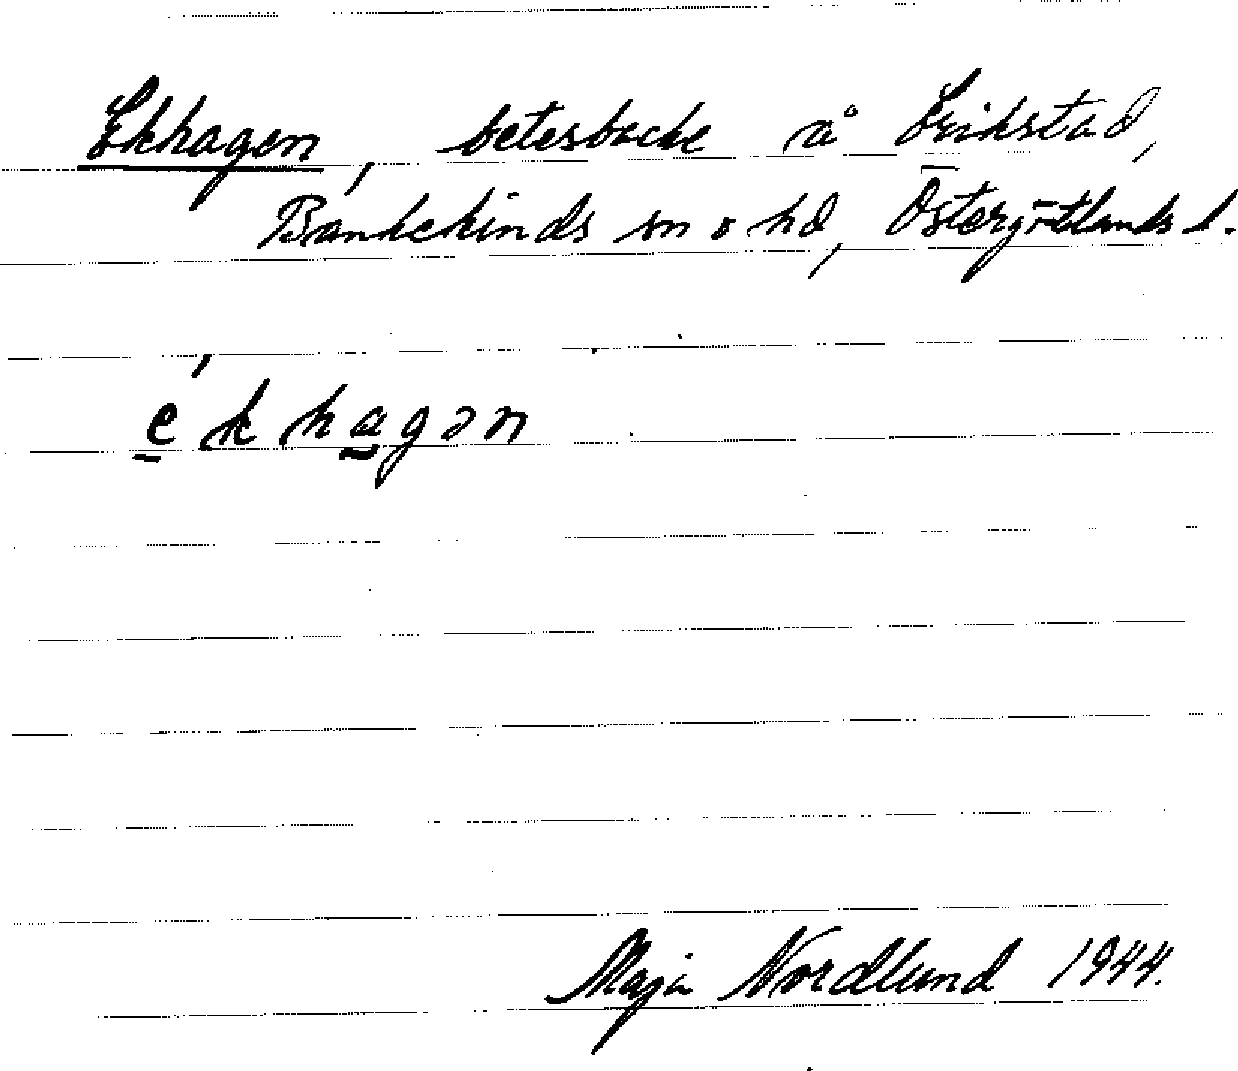 Ekhagen, betesbacke å Erikstad,
Bankekinds sn o hd, Östergötlands l.
e̲´k ha̲gən
Maja Nordlund 1944.